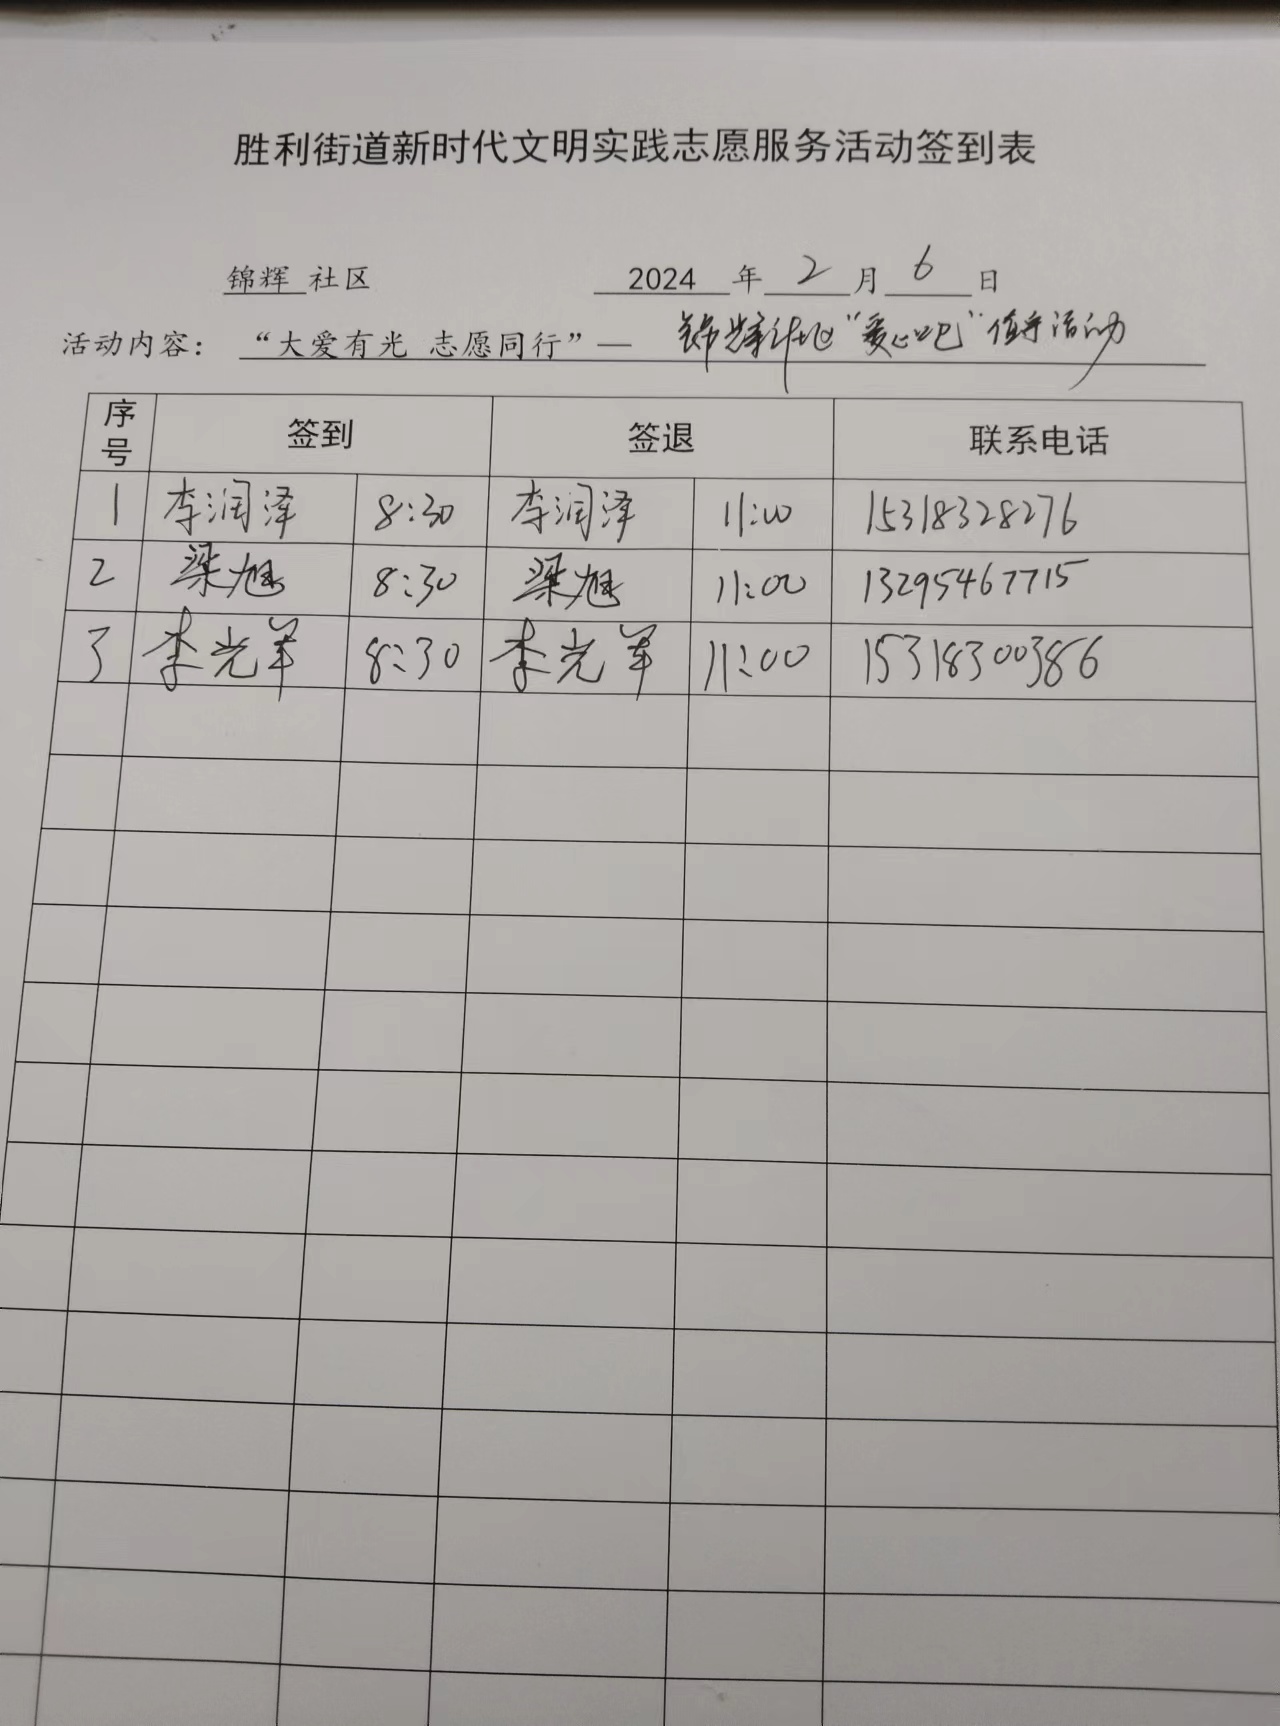 胜利街道新时代文明实践志愿服务活动签到表
锦辉 社区 2024 年 2 月 6 日
活动内容：“大爱有光 志愿同行”— 锦辉社区“爱心吧”值守活动
序号 签到 签退 联系电话
1 李润泽 8:30 李润泽 11:00 15318328276
2 梁旭 8:30 梁旭 11:00 13295467715
3 李光军 8:30 李光军 11:00 15318300386